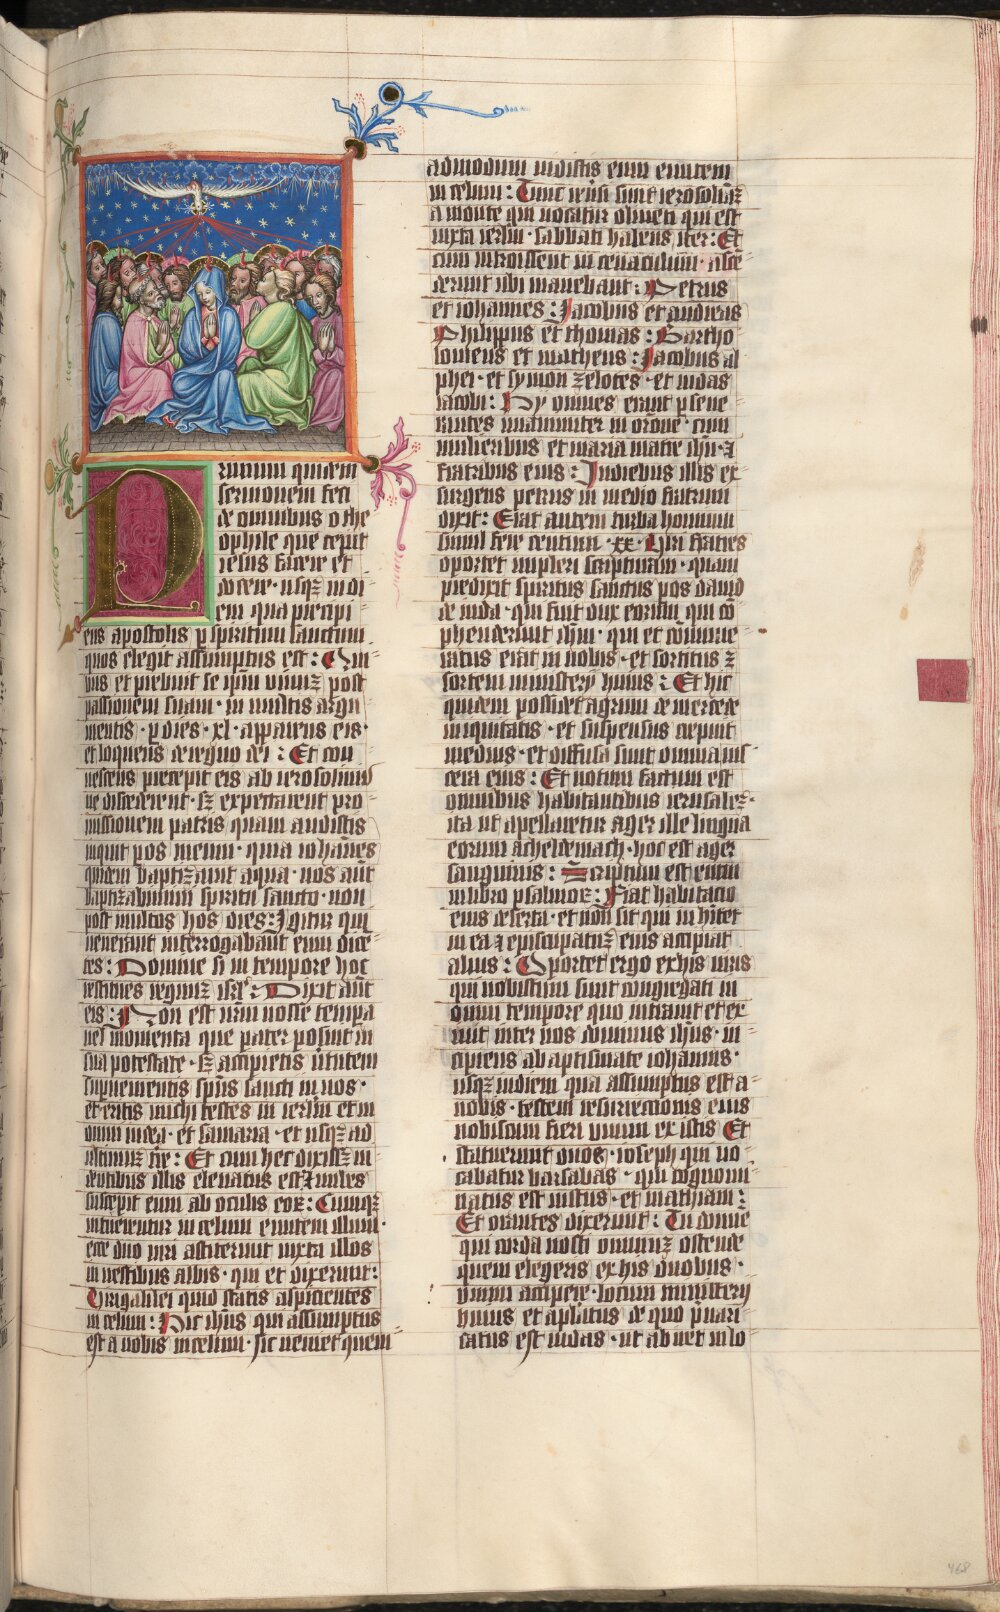 P
rimum quidem
sermonem feci
de omnibus o the
ophile que cepit
iesus facere et
docere · usqꝫ in di
em qua precipi
ens apostolis ꝑ spiritum sanctum
quos elegit assumptus est : Qui
bus et prebuit se ip̄m viuuꝫ post
passionem suam · in multis argu
mentis · ꝑ dies · xl · apparens eis ·
et loquens de regno dei : Et con
uescens precepit eis ab ierosolimis
ne discederent · sꝫ expectarent pro
missionem patris quam audistis
inquit pos meum · quia iohānes
quidem baptizauit aqua · vos aūt
baptizabimini spiritu sancto · non
post multos hos dies : Igitur qui
uenerant interrogabant eum dicē
tes : Domine si in tempore hoc
restitues regnuꝫ isrl̄ : Dixit aūt
eis : Non est vr̄m nosse tempa
uel momenta que pater posuit in
sua potestate · sꝫ accipietis uirtutem
superuenientis sp̄us sancti in uos ·
et eritis michi testes in ierl̄m et in
omni iudea · et samaria · et usqꝫ ad
ultimuꝫ t̄re : Et cum hec dixisꝫ ui
dentibus illis eleuatus est ⁊ nubes
suscepit eum ab oculis eoꝝ : Cumqꝫ
intuerentur in celum euntem illum ·
ecce duo uiri astiterunt iuxta illos
in uestibus albis · qui et dixerunt :
Uiri galilei quid statis aspicientes
in celum : Hic ih̄us qui assumptus
est a uobis in celum · sic ueniet quem
admodum uidistis eum euntem
in celum : Tunc reūsi sunt ierosolimā
a monte qui uocatur oliueti qui est
iuxta ierl̄m · sabbati habens iter : Et
cum introissent in cenaculum · ascē
derunt ubi manebant : Petrus
et iohannes : Jacobus et andreas
Philippus et thomas : Bartho
lomeus et matheus : Jacobus al
phei · et symon zelotes · et iudas
Jacobi : Hy omnes erant ꝑseue
rantes unanimiter in orōne · cum
mulieribus et maria matre ih̄u · ⁊
fratribus eius : In diebus illis ex
surgens petrus in medio fratrum
dixit : Erat autem turba hominum
simul fere centum · xx · Uiri fratres
oportet impleri scripturam · quam
predixit spiritus sanctus ꝑ os dauid
de iuda · qui fuit dux eorum qui cō
phenderunt ih̄m · qui et cōnume
ratus erat in nobis · et sortitus ē
sortem ministerij huius : Et hic
quidem possidet agrum de mercede
iniquitatis · et suspensus crepuit
medius · et diffusa sunt omnia uis
cera eius : Et notum factum est
omnibus habitantibus ierusaleꝫ ·
ita ut apellaretur ager ille lingua
eorum acheldemach · hoc est ager
sanguinis : Scriptum est enim
in libro psalmoꝝ : Fiat habitacio
eius deserta · et non sit qui inhitet
in ea ⁊ episcopatuꝫ eius accipiat
alius : Oportet ergo ex his uiris
qui nobiscum sunt congregati in
omni tempore quo intrauit et ex
iuit inter nos dominus ih̄us · in
cipiens a baptismate iohannis ·
usqꝫ in diem qua assumptus est a
nobis · testem resurrectionis eius
nobiscum fieri unum ex istis Et
statuerunt duos · ioseph qui uo
cabatur barsabas · qui cognomi
natus est iustus · et mathiam :
Et orantes dixerunt : Tu domine
qui corda nosti omniuꝫ ostende
quem elegeris ex his duobus ·
unum accipere · locum ministerij
huius et aplātus de quo p̄uari
catus est iudas · ut abiret in lo
468